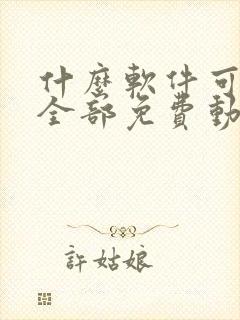 什麼軟件可
全部免費動
許姑娘